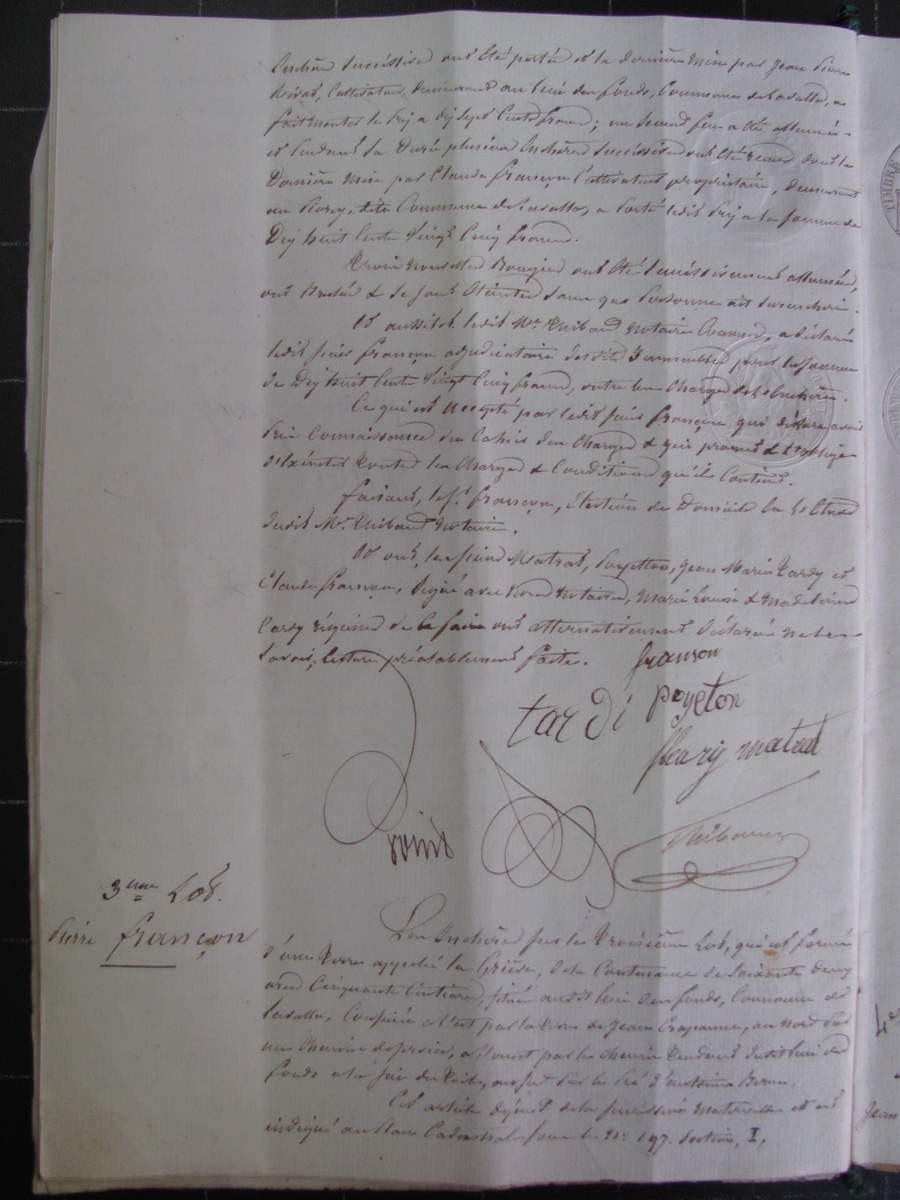 Enchère successive ont été portée et la dernière mise par Jean Pierre
cultivateur, demeurant au lieu des fonds, Commune de Lavalla, a
fait monter le prix a dix sept cents francs; un second feu a été allumé
et pendant sa durée plusieurs Enchères successives ont été reçues dont la
Dernière mise par Claude françon Cultivateur propriétaire, demeurant
au dite Commune de Lavalla, a porté ledit prix a la somme de
Dix huit cents vingt cinq francs.
Trois nouvelles Bougies ont été successivement allumées,
ont Brulé & se sont éteintes sans que personne ait surenchéri.
Et aussitôt ledit Me Thibaud notaire Commis, a déclaré
ledit sieur françon adjudicataire desdits immeubles pour la somme
de Dix huit cents vingt cinq francs, outre les Charges de l'enchère.
Ce qui est accepté par ledit sieur françon qui déclare avoir
pris connaissance du Cahier des Charges & qui promet & s'oblige
d'exécuter toutes les Charges & Conditions qu'il contient.
faisant, le sr françon, élection de Domicile en l'étude
dudit Me Thibaud notaire.
Et ont, les sieurs Matrat, Poyeton, Jean Marie Tardy et
Claude françon, signé avec nous notaire, Marie Louise & Madeleine
Tardy réquises de le faire ont alternativement déclaré ne le
savoir, lecture préalablement faite.
françon
tardi poyeton
fleury matrat
Thibaud
3eme Lot.
Pierre françon
Les Enchères sur le troisième Lot, qui est formé
d'une terre appelée la de la Contenance de soixante deux
ares cinquante centiares, située audit lieu des fonds, Commune de
Lavalla, Confinée a l'est par la terre de Jean au Nord par
un Chemin de service, a l'ouest par le chemin tendant dudit lieu des
fonds au sud par le pré d'antoine
Cet article dépend de la succession Maternelle et est
indiqué au Plan Cadastral sous le No 197. Section, I,
4e
Jean
TIMBRE